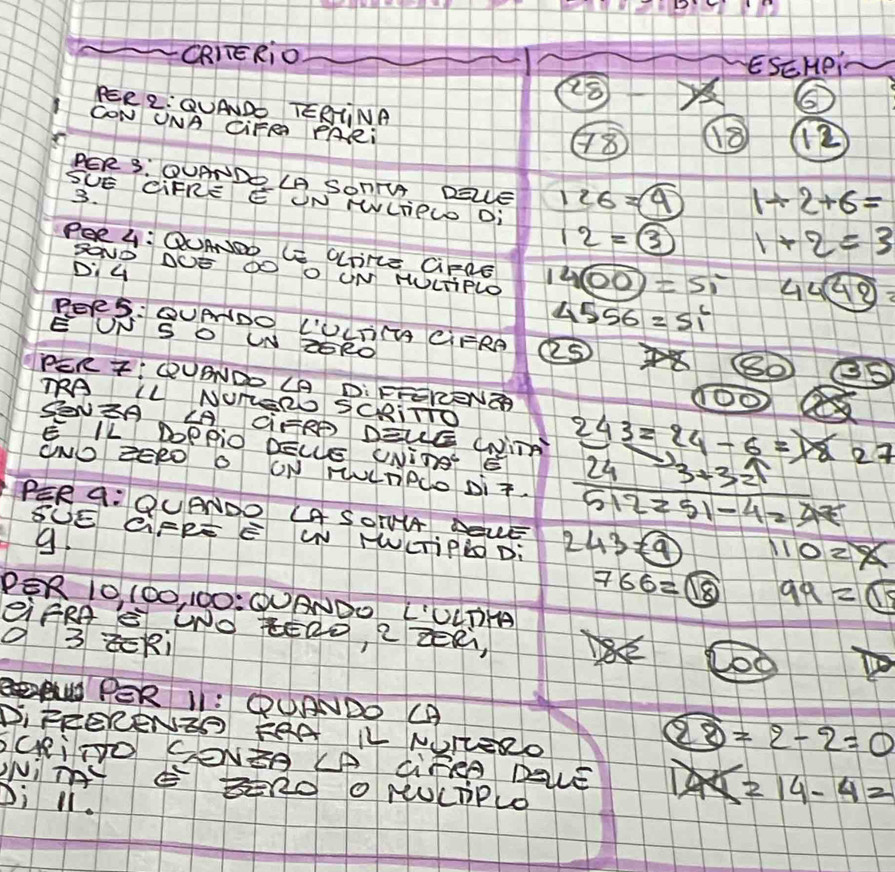 CRITERIO ESEMPI
PER 2: QUANDO TERMINA
CON UNA CIFRA PARI
28 - 6
78 18 12
PER 3: QUANDO LA SOMMA DELLE
SUE CIFRE È UN MULTIPLO DI
3.
126 = 9 1+2+6=
12 = 3 1+2=3
PER 4: QUANDO LE ULTIME CIFRE
SONO DUE 00 O UN MULTIPLO
DI 4
1400 = SÌ 4442 =
4556 = SÌ
PER 5: QUANDO L'ULTIMA CIFRA
È UN 5 O UN ZERO
25 78 80 35
100
PER 7: QUANDO LA DIFFERENZA
TRA IL NUMERO SCRITTO
SENZA LA CIFRA DELLE UNITÀ
E IL DOPPIO DELLE UNITÀ È
UNO ZERO O UN MULTIPLO DI 7.
243 = 24 - 6 = 18 27
24 3+3=↑
512 = 51 - 4 =
PER 9: QUANDO LA SOMMA DELLE
SUE CIFRE È UN MULTIPLO DI
9.
243 = 9 110 = 2
766 = 18 99 = 18
PER 10,100,100: QUANDO L'ULTIMA
CIFRA È UNO ZERO, 2 ZERI,
O 3 ZERI
200
PER 11: QUANDO LA
DIFFERENZA FRA IL NUMERO
SCRITTO SENZA LA CIFRA DELLE
UNITÀ È ZERO O MULTIPLO
DI 11.
22 = 2-2=0
144 = 14-4=